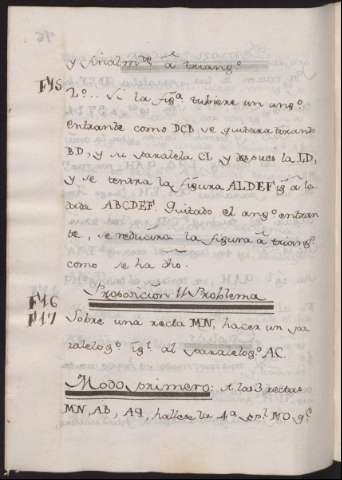 y finalm.te al triang.o
F45
2.o.. Si la fig.a tubiere un ang.o
entrante como DCB se quitara tirando
BD, y su paralela CL y despues la LD,
y se tendra la figura ALDEF ig.l a la
dada ABCDEF. Quitado el ang.o entran
te, se reducira la figura al triang.o
como se ha dho.
Proposicion 11 Problema
F46
F47
Sobre una recta MN, hacer un pa
ralelog.o ig.l al paralelog.o AC.
Modo primero: A las 3 rectas
MN, AB, AQ, hallese la 4.a pp.l MO q.e